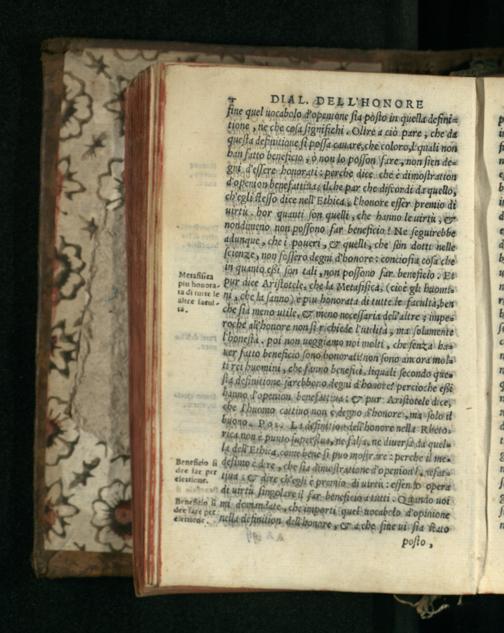 DIAL. DELL'HONORE
fine quel uocabolo d'openione sia posto in quella defini-
tione, ne che cosa significhi. Oltre a ciò pare, che da
questa definitione si possa cauare, che coloro, liquali non
han fatto beneficio, ò non lo posson fare, non sien de-
gni d'essere honorati: perche dice che è dimostration
d'openion benefattiua: il che par che discordi da quello,
ch'egli stesso dice nell'Ethica, l'honore esser premio di
uirtu, hor quanti son quelli, che hanno le uirtù, &
nondimeno non possono far beneficio? Ne seguirebbe
adunque, che i poueri, & quelli, che son dotti nelle
scienze, non fossero degni d'honore: conciosia cosa che
in quanto essi son tali, non possono far beneficio. Et
pur dice Aristotele, che la Metafisica, (cioè gli huomi-
ni, che la sanno) è piu honorata di tutte le facultà, ben
che sia meno utile, & meno necessaria dell'altre: impe-
roche all'honore non si richiede l'utilità, ma solamente
l'honesta. poi non ueggiamo noi molti, che senza ha-
uer fatto beneficio sono honorati? non sono ancora mol-
ti rei huomini, che fanno benefici, liquali secondo que-
sta definitione sarebbono degni d'honore? percioche essi
hanno d'openion benefattiua: & pur Aristotele dice,
che l'huomo cattiuo non è degno d'honore, ma solo il
buono. Pos. La definition dell'honore nella Rheto-
rica non è punto superflua, ne falsa, ne diuersa da quel-
la dell'Ethica, come bene si puo mostrare: perche il me-
desimo è dire, che sia dimostratione d'openion benefat-
tiua; & dire ch'egli è premio di uirtu: essen­do opera
di uirtù singolare il far beneficio a tutti. Quando uoi
mi domandate, che importi quel uocabolo d'opinione
nella definition dell'honore, & a che fine ui sia stato
posto,
Metafisica
piu honora-
ta di tutte le
altre facul-
tà.
Beneficio si
dee far per
elettione.
Beneficio si
dee fare per
elettione.